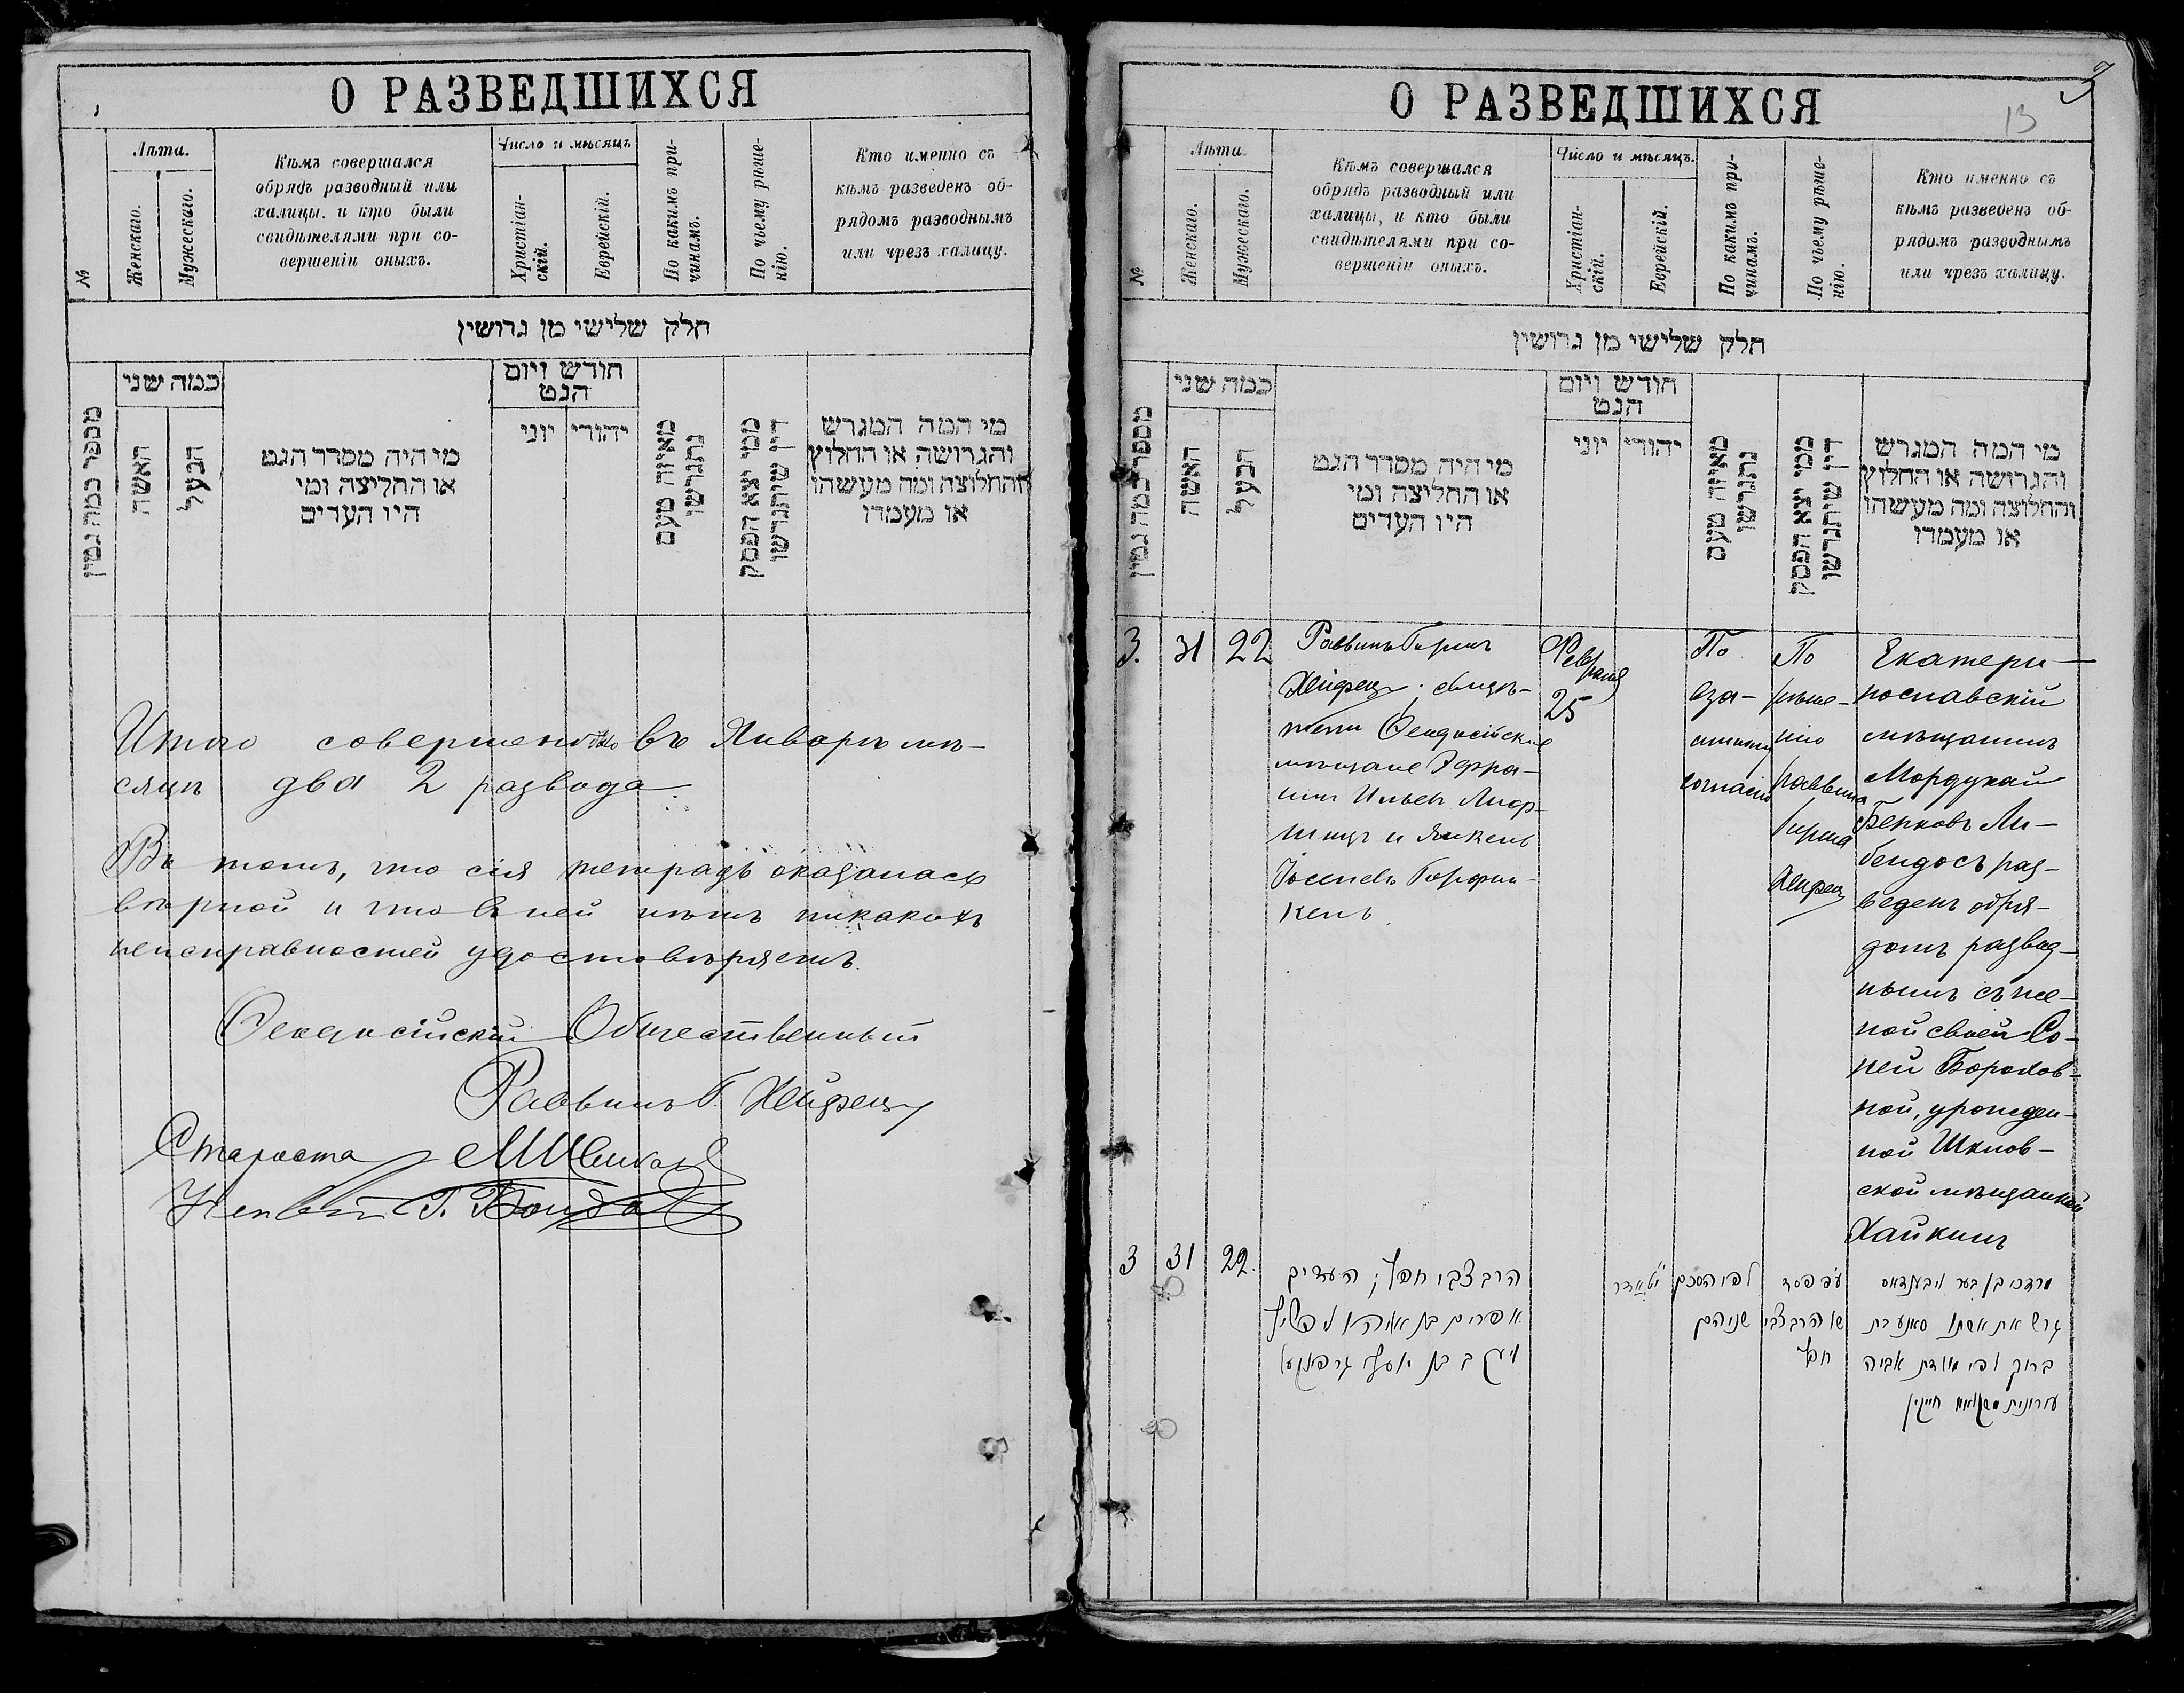 О РАЗВЕДШИХСЯ
№
Лѣта.
Женскаго.
Мужескаго.
Кѣмъ совершался
обрядъ разводный или
халицы, и кто были
свидѣтелями при со-
вершеніи оныхъ.
Число и мѣсяцъ
Христіан-
скій.
Еврейскій.
По какимъ при-
чинамъ.
По чьему рѣше-
нію.
Кто именно съ
кѣмъ разведенъ об-
рядомъ разводнымъ
или чрезъ халицу.
חלק שלישי מן גרושין
מספר כמה גטין
כמה שני
האשה
הבעל
מי היה מסדר הגט
או החליצה ומי
היו העדים
חודש ויום
הגט
יהודי
יוני
מאיזה טעם
נתגרשו
ממי יצא הפסק
דין שיתגרשו
מי המה המגרש
והגרושה או החלוץ
והחלוצה ומה מעשהו
או מעמדו
Итого совершено было въ Январѣ мѣ-
сяцѣ два 2 развода
Въ томъ, что сія тетрадь оказалась
вѣрной и что въ ней нѣтъ никакихъ
неисправностей удостовѣряемъ.
Ѳеодосійскій Общественный
Раввинъ Г. Хейфецъ
Староста
О РАЗВЕДШИХСЯ
3
13
№
Лѣта
Женскаго.
Мужескаго.
Кѣмъ совершался
обрядъ разводный или
халицы, и кто были
свидѣтелями при со-
вершеніи оныхъ.
Число и мѣсяцъ.
Христіан-
скій.
Еврейскій.
По какимъ при-
чинамъ.
По чьему рѣше-
нію.
Кто именно съ
кѣмъ разведенъ об-
рядомъ разводнымъ
или чрезъ халицу.
חלק שלישי מן גרושין
מספר כמה גטין
כמה שני
האשה
הבעל
מי היה מסדר הגט
או החליצה ומי
היו העדים
חודש ויום
הגט
יהודי
יוני
מאיזה טעם
נתגרשו
ממי יצא הפסק
דין שיתגרשו
מי המה המגרש
והגרושה או החלוץ
והחלוצה ומה מעשהו
או מעמדו
3.
31
22
Раввинъ Гиршъ
Хейфецъ; свидѣ-
тели Ѳеодосійскіе
мѣщане Эфра-
имъ Ильевъ Лиф-
шицъ и Янкель
Іосилевъ Горфин-
кель.
Февраля
25
По
вза-
имному
согласію
По
рѣше-
нію
раввина
Гирша
Хейфеца
Екатери-
нославскій
мѣщанинъ
Мордухай
Берковъ Ли-
бендосъ раз-
веденъ обря-
домъ развод-
нымъ съ же-
ной своей Со-
ней Борохов-
ной, урожден-
ной Шклов-
ской мѣщанкой
Хайкинъ
3
31
22.
הרב צבי חפץ; העדים
אפרים בן אליהו ליפשיץ
ויעקב בן יוסף גרפונקעל
י"ט אדר
לפי הסכם
שניהם
ע"פ פסד
של הרב צבי
חפץ
מרדכי בן בער ליבענדאס
גרש את אשתו סאניע בת
ברוך לפי מולדת אביה
עירונית משקלאוו חייקין